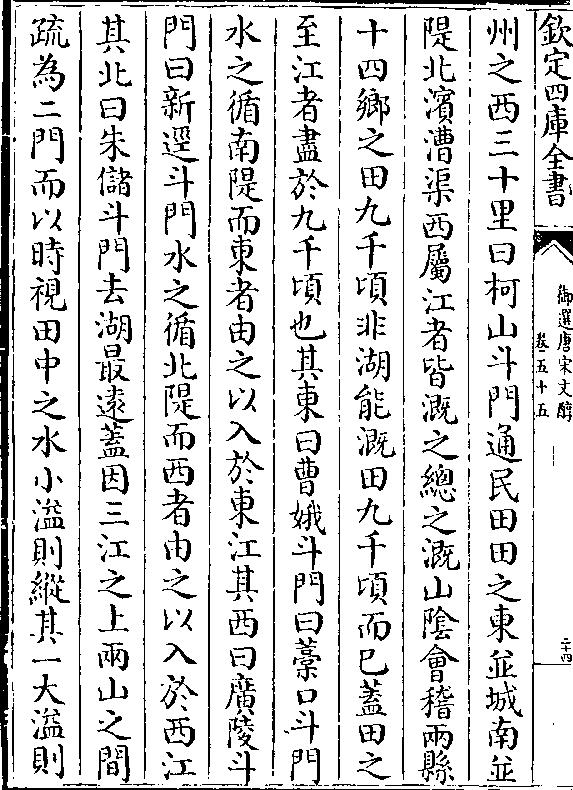 欽定四庫全書
御選唐宋文醇
卷五十五
二十四
州之西三十里曰柯山斗門通民田田之東並城南並
隄北濱漕渠西屬江者皆溉之總之溉山隂會稽兩縣
十四鄉之田九千頃非湖能溉田九千頃而已蓋田之
至江者盡於九千頃也其東曰曹娥斗門曰藁口斗門
水之循南隄而東者由之以入於東江其西曰廣陵斗
門曰新逕斗門水之循北隄而西者由之以入於西江
其北曰朱儲斗門去湖最遠蓋因三江之上兩山之間
疏為二門而以時視田中之水小溢則縱其一大溢則